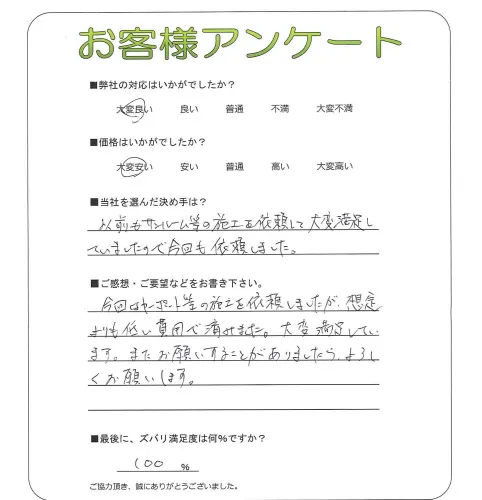 お客様アンケート
■弊社の対応はいかがでしたか？
大変良い　良い　普通　不満　大変不満
■価格はいかがでしたか？
大変安い　安い　普通　高い　大変高い
■当社を選んだ決め手は？
以前もサンルーム等の施工を依頼して大変満足し
ていましたので今回も依頼しました。
■ご感想・ご要望などをお書き下さい。
今回はカーポート等の施工を依頼しましたが、想定
よりも低い費用で済みました。大変満足してい
ます。またお願いすることがありましたら、よろし
くお願いします。
■最後に、ズバリ満足度は何％ですか？
100 ％
ご協力頂き、誠にありがとうございました。